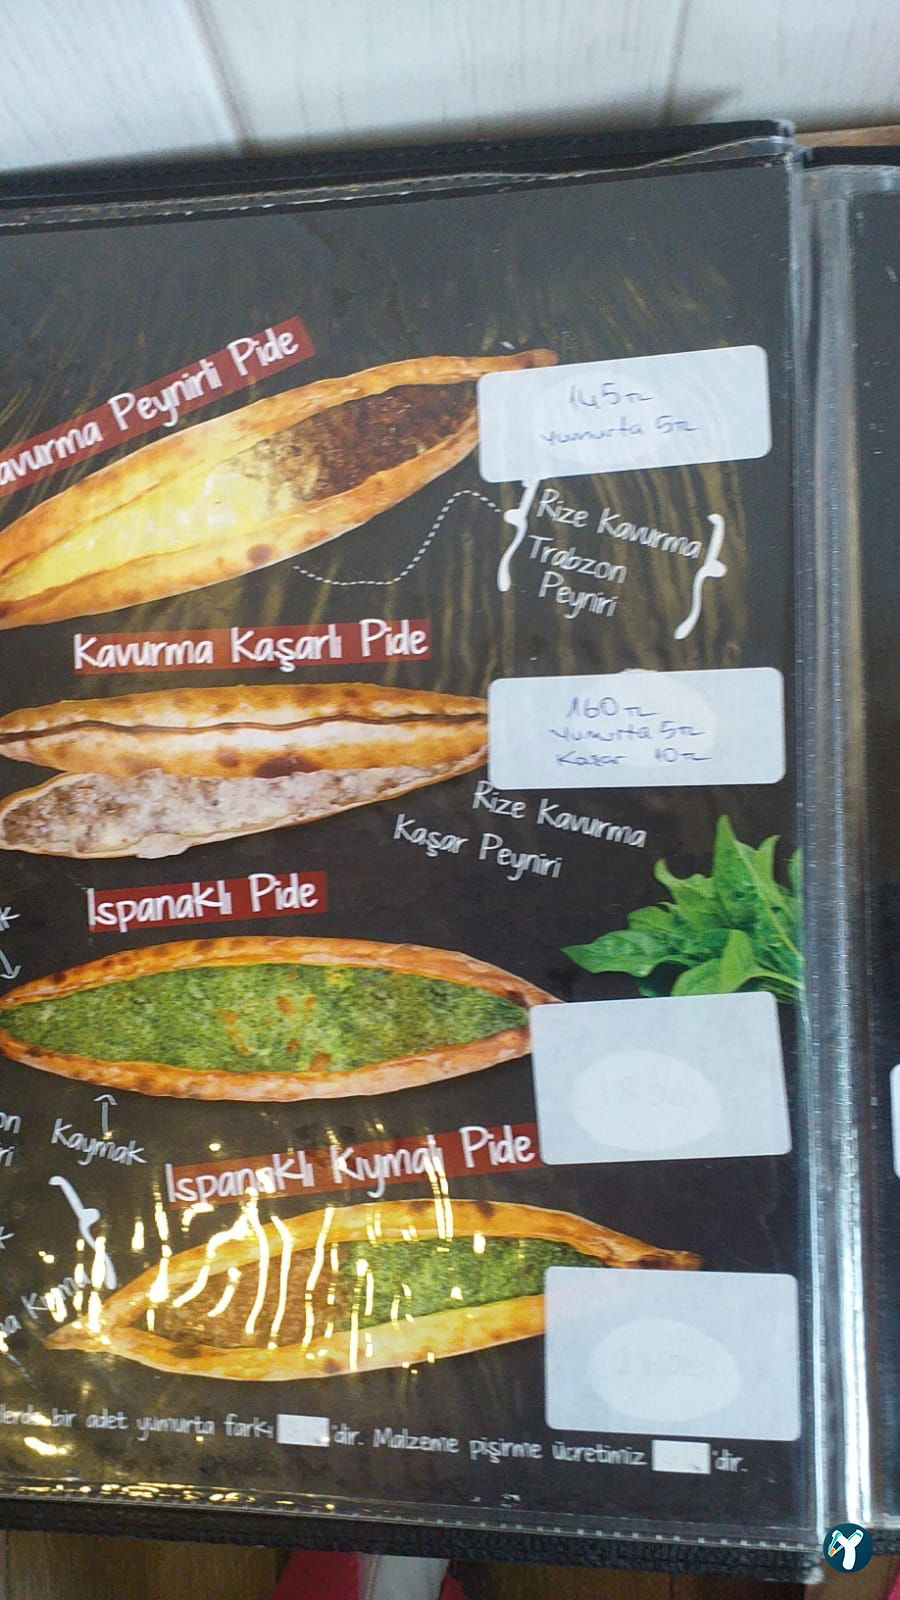 avurma Peynirli Pide
145 TL
yumurta 5 TL
Rize Kavurma
Trabzon
Peyniri
Kavurma Kaşarlı Pide
160 TL
yumurta 5 TL
Kaşar 10 TL
Rize Kavurma
Kaşar Peyniri
Ispanaklı Pide
Kaymak
Ispanaklı Kıymalı Pide
bir adet yumurta farkı 'dir. Malzeme pişirme ücretimiz 'dir.